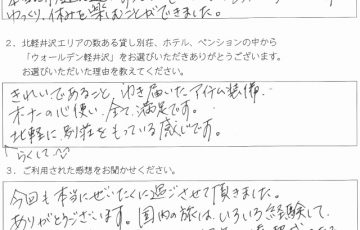 ゆっくり、休みを楽しむことができました。
2．北軽井沢エリアの数ある貸し別荘、ホテル、ペンションの中から
「ウォールデン軽井沢」をお選びいただきありがとうございます。
お選びいただいた理由を教えてください。
きれいであること、ゆき届いたアイテム装備、
オーナーの心使い、全て、満足です。
北軽に別荘をもっている感じです。
らくして
3．ご利用された感想をお聞かせください。
今回も本当にぜいたくに過ごさせて頂きました。
ありがとうございます。国内の旅は、いろいろ経験して